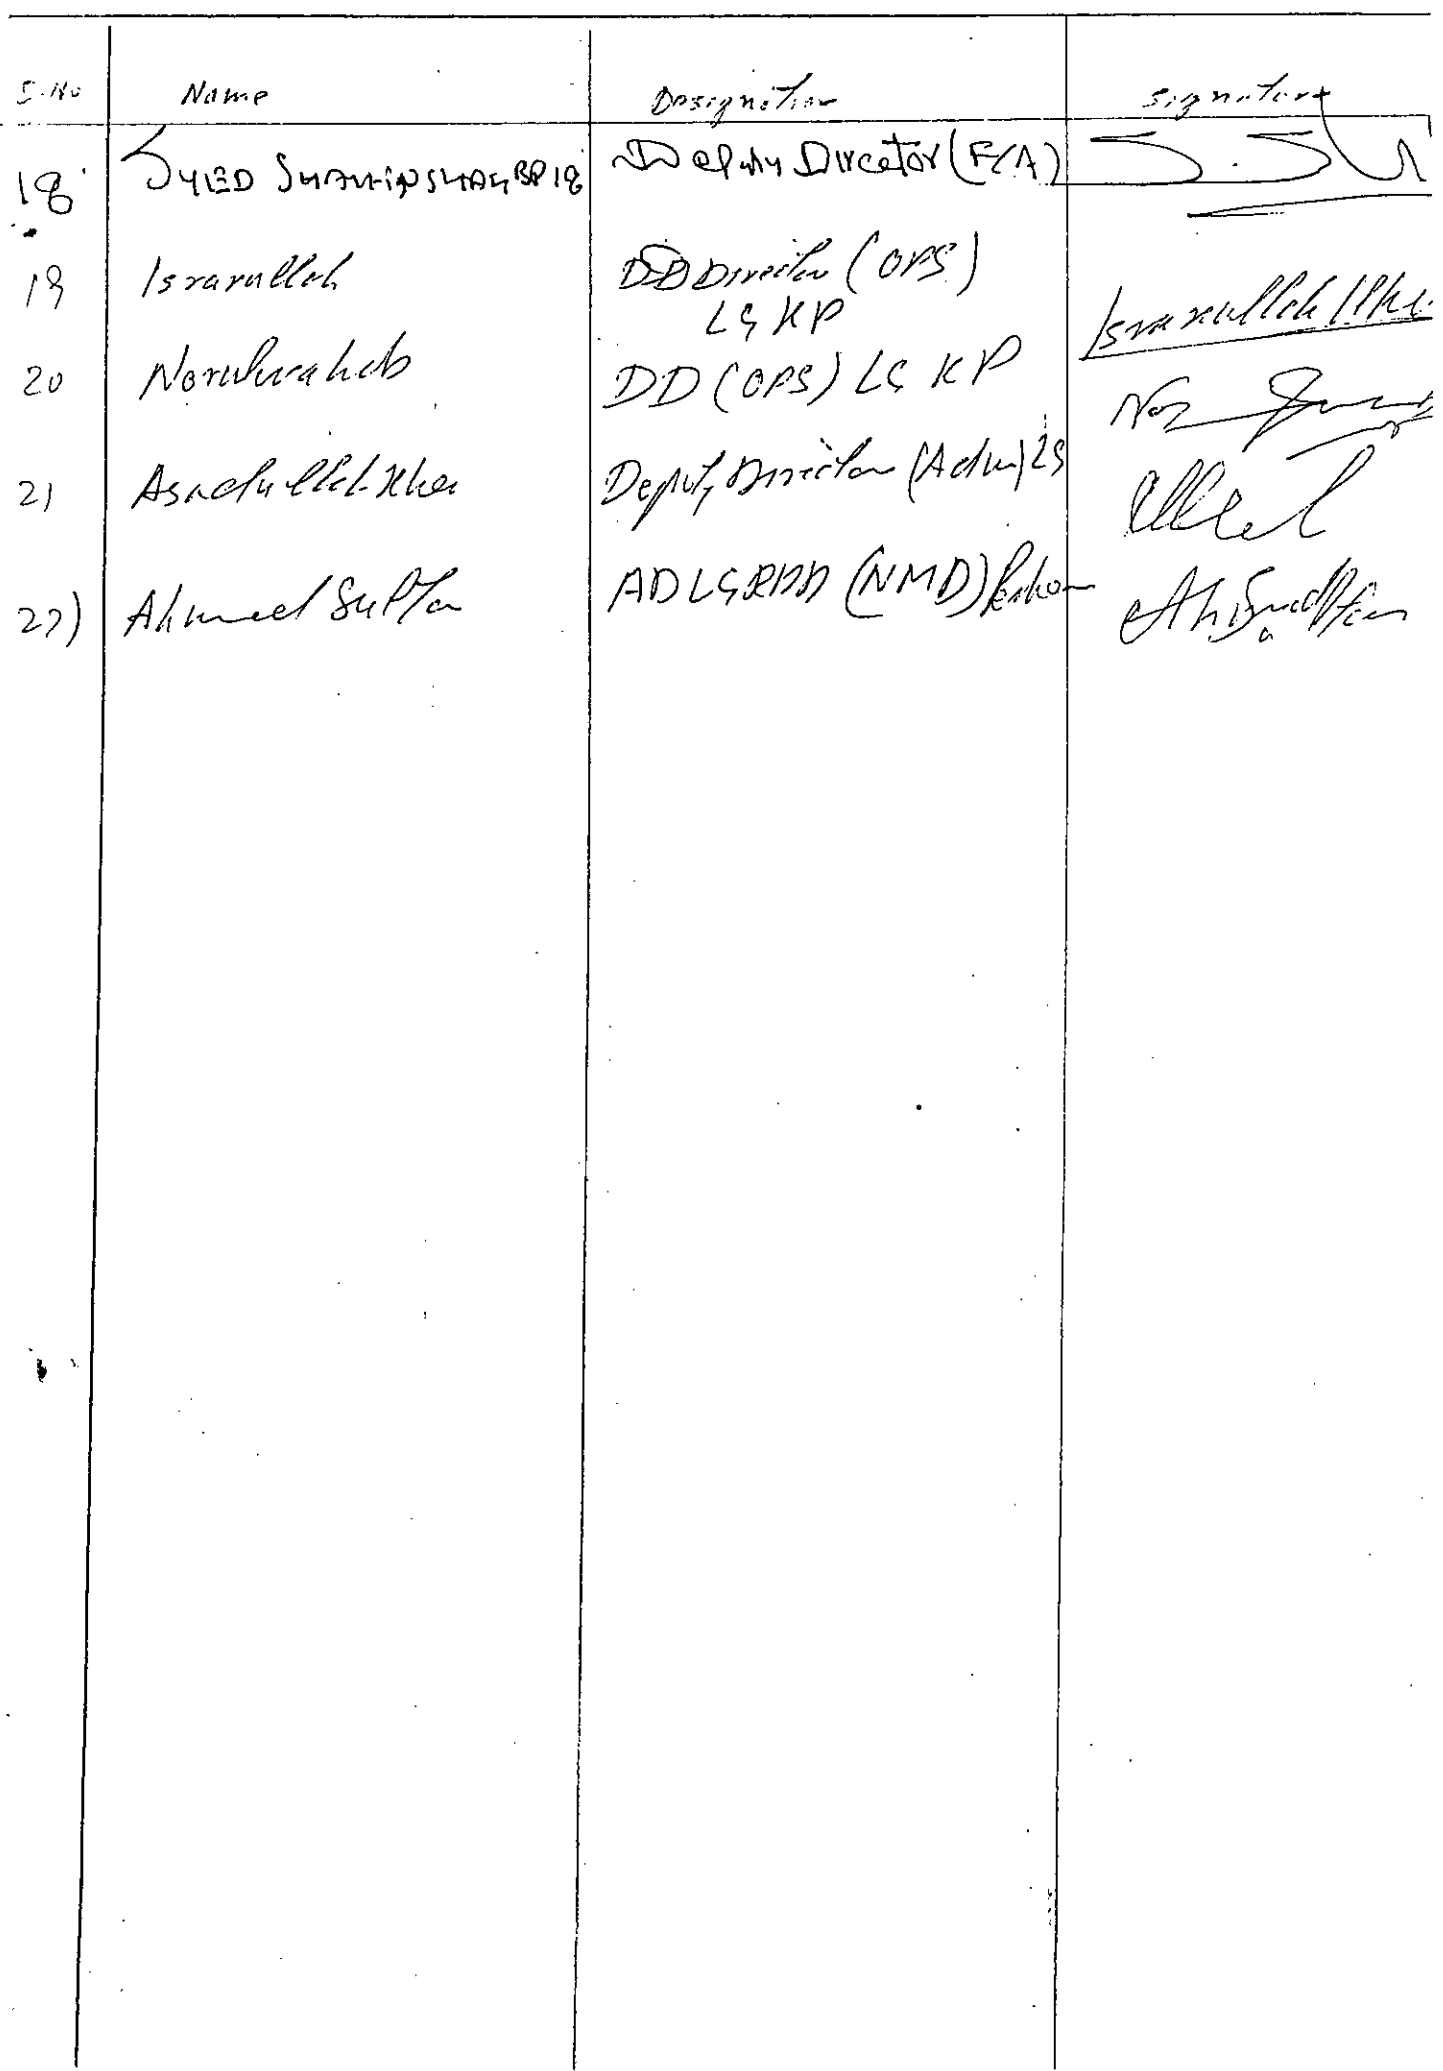 S.No Name Designation Signature
18 SYED SHAHINSHAH BP 18 Deputy Director (F/A)
19 Israrullah DD Director (OPS)
LG KP
Israrullah
20 Norulwahab DD (OPS) LG KP
21 Asadullah Khan Deputy Director (Admn) LG
22) Ahmed Sultan ADLGRDD (NMD)